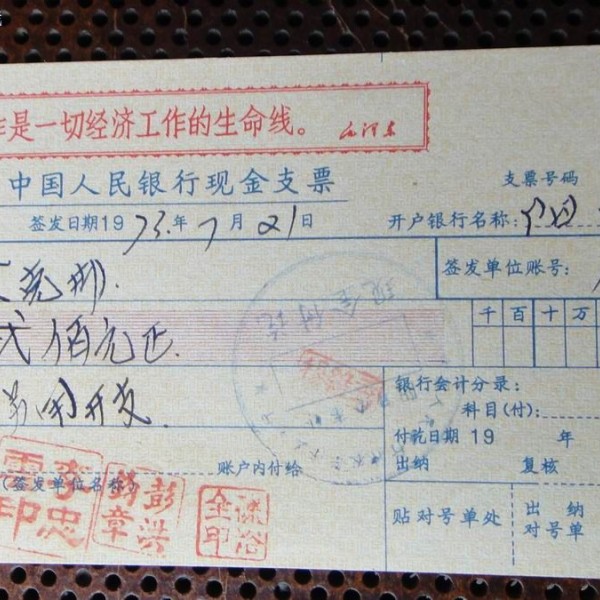 作是一切经济工作的生命线。 毛泽东
中国人民银行现金支票
支票号码
签发日期19 73 年 7 月 21 日
开户银行名称:
签发单位账号:
贰佰元正
千 百 十 万
费用开支
银行会计分录:
科目(付):
付讫日期 19 年
账户内付给
出纳 复核
(签发单位名称)
现金付讫
贴对号单处
出纳
对号单